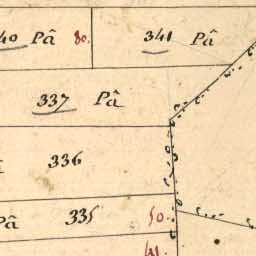 40 Pâ 80. 341 Pâ
337 Pâ
336
Pâ 335 50.
41.